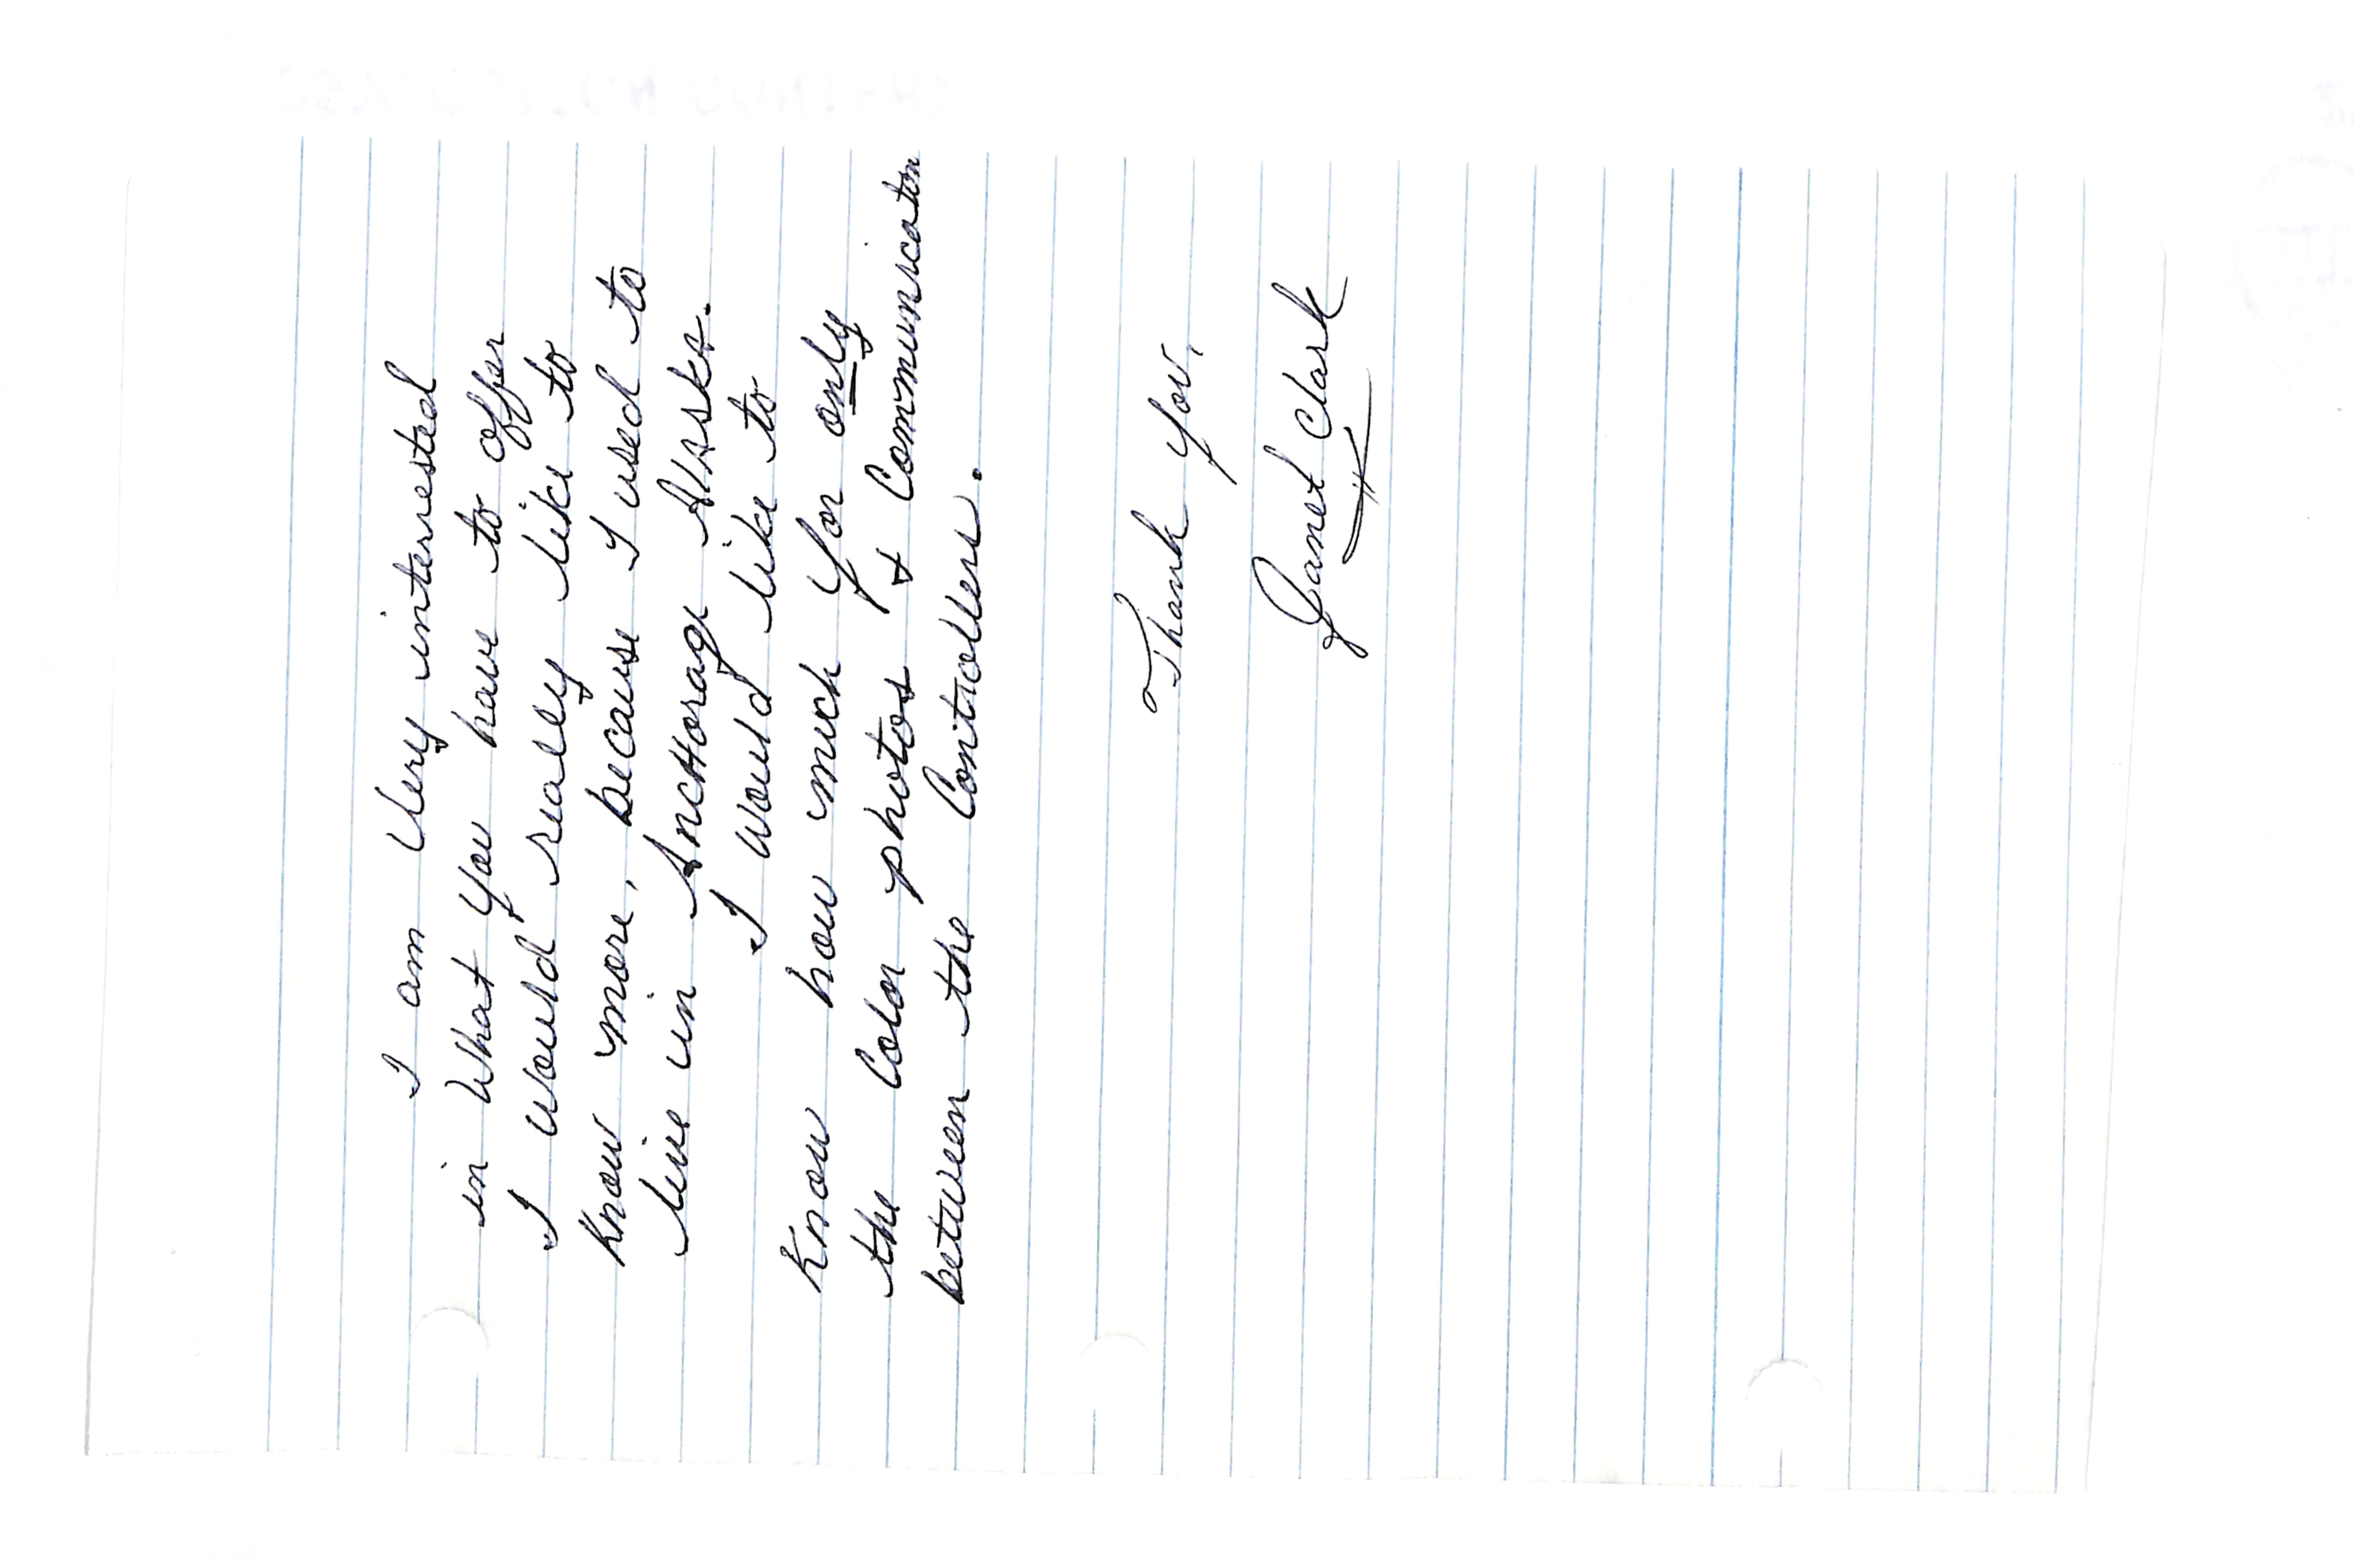 I am Very interrested
in What you have to offer
I would really like to
Know more, because I used to
live in Anchorage Alaska.
I would like to
Know how much for only
the Color photos & Communicaton
between the Controllers.
Thank you,
Janet Clark